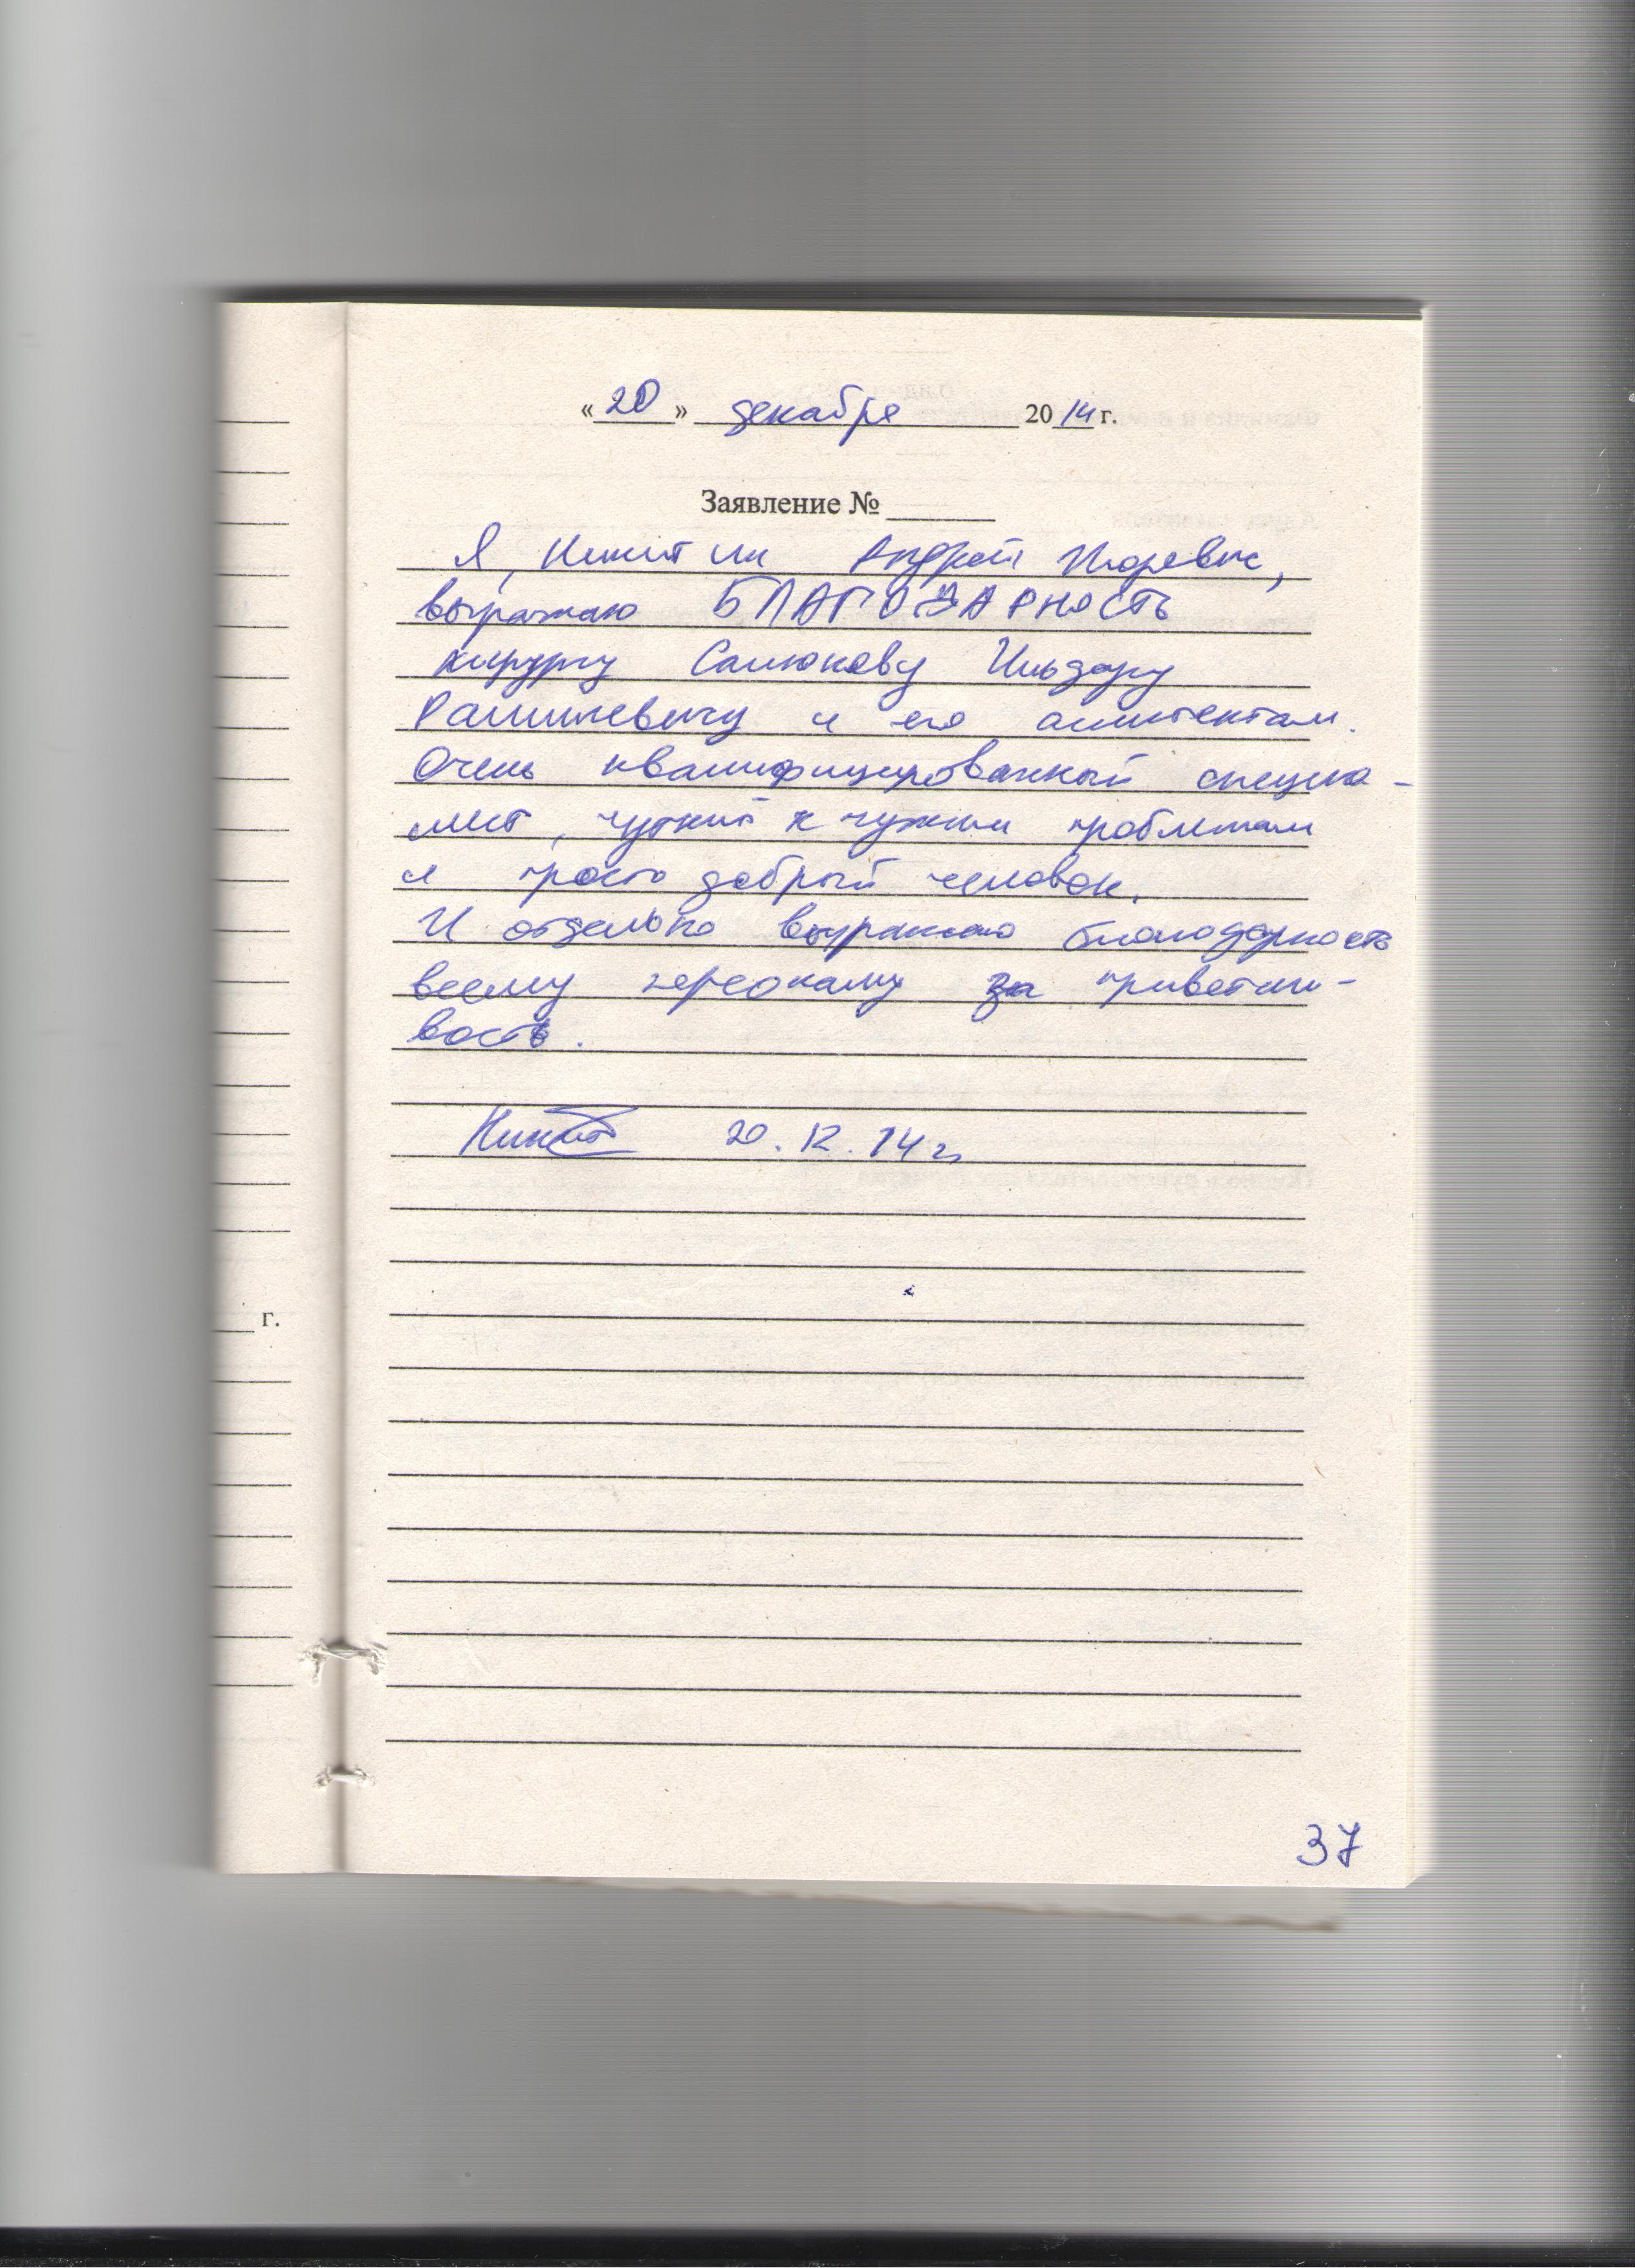 «20» декабря 2014 г.
Заявление №
Я, Никитин Андрей Игоревич,
выражаю БЛАГОДАРНОСТЬ
хирургу Салюкову Ильдару
Рашитевичу и его ассистентам.
Очень квалифицированный специа-
лист, чуткий к чужим проблемам
и просто добрый человек.
И отдельно выражаю благодарность
всему персоналу за приветли-
вость.
20.12.14 г.
г.
37